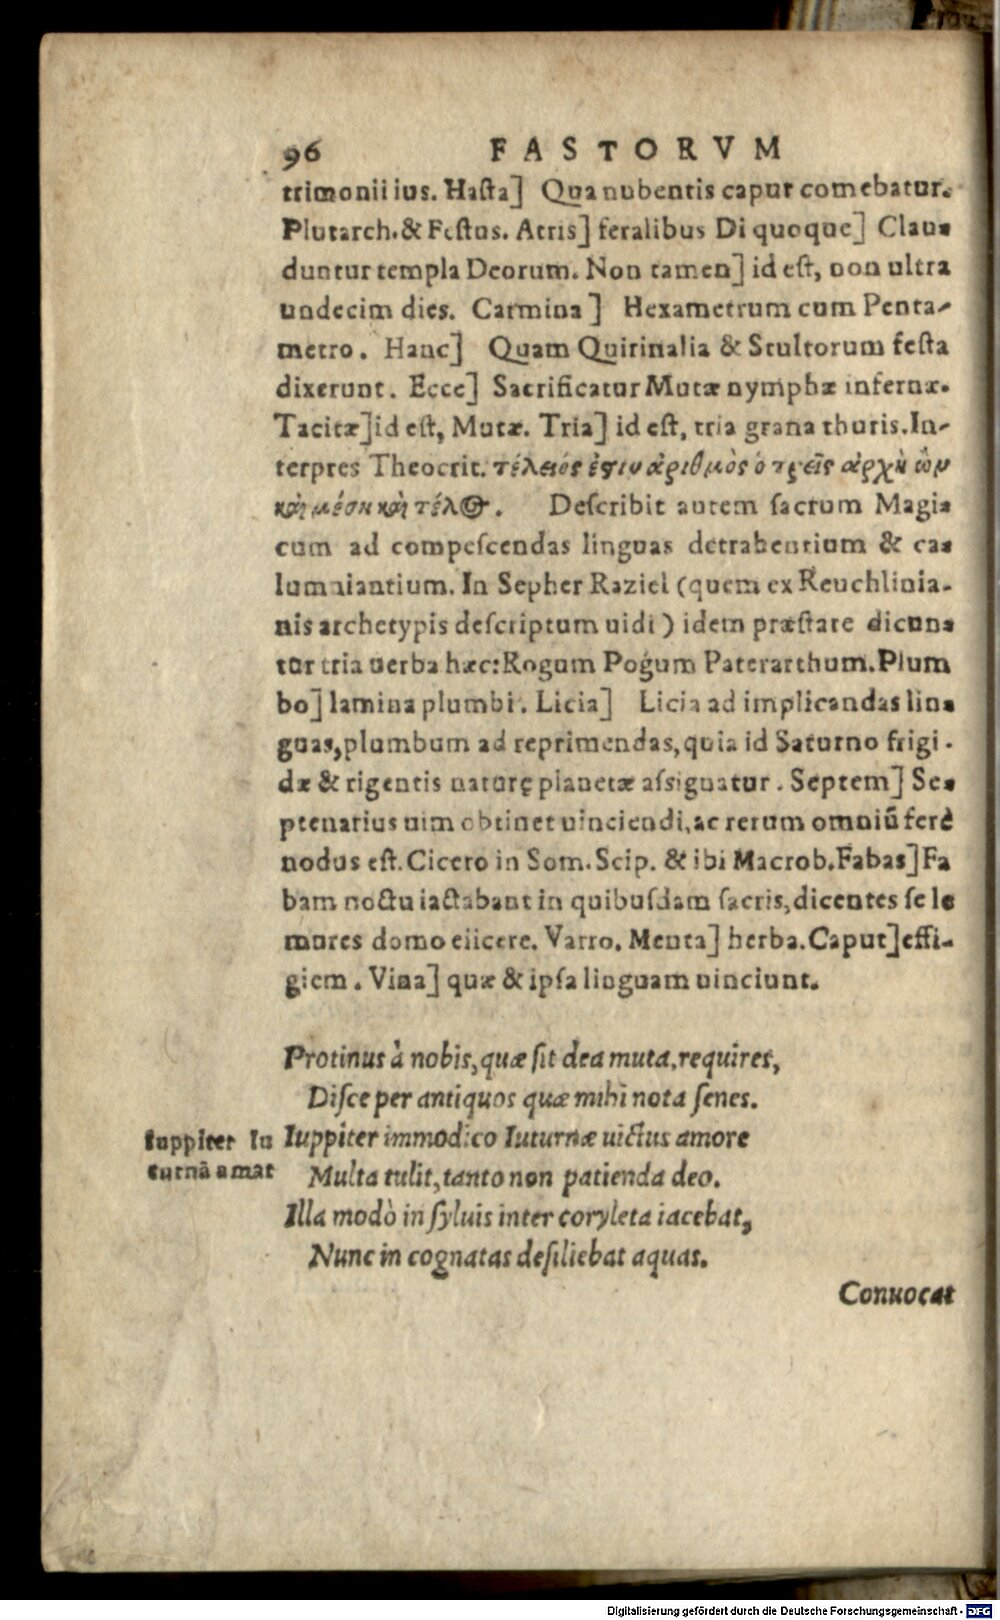 96 FASTORVM
trimonii ius. Hasta] Qua nubentis caput comebatur.
Plutarch. & Festus. Atris] feralibus Di quoque] Clau-
duntur templa Deorum. Non tamen] id est, non ultra
undecim dies. Carmina] Hexametrum cum Penta-
metro. Hanc] Quam Quirinalia & Stultorum festa
dixerunt. Ecce] Sacrificatur Mutæ nymphæ infernæ.
Tacitæ] id est, Mutæ. Tria] id est, tria grana thuris. In-
terpres Theocrit. τέλειός ἐστιν ἀριθμὸς ὁ τρεῖς ἀρχὴ ὢν
καὶ μέση καὶ τέλος. Describit autem sacrum Magi-
cum ad compescendas linguas detrahentium & ca-
lumniantium. In Sepher Raziel (quem ex Reuchlinia-
nis archetypis descriptum uidi) idem præstare dicun-
tur tria uerba hæc: Rogum Pogum Paterarthum. Plum
bo] lamina plumbi. Licia] Licia ad implicandas lin-
guas, plumbum ad reprimendas, quia id Saturno frigi-
dæ & rigentis naturę planetæ assignatur. Septem] Se-
ptenarius uim obtinet uinciendi, ac rerum omniũ ferè
nodus est. Cicero in Som. Scip. & ibi Macrob. Fabas] Fa
bam noctu iactabant in quibusdam sacris, dicentes se le
mures domo eiicere. Varro. Menta] herba. Caput] effi-
giem. Vina] quæ & ipsa linguam uinciunt.
Protinus à nobis, quæ sit dea muta, requires,
Disce per antiquos quæ mihi nota senes.
Iuppiter Iu
turnã amat
Iuppiter immodico Iuturnæ uictus amore
Multa tulit, tanto non patienda deo.
Illa modò in syluis inter coryleta iacebat,
Nunc in cognatas desiliebat aquas.
Conuocat
Digitalisierung gefördert durch die Deutsche Forschungsgemeinschaft - DFG